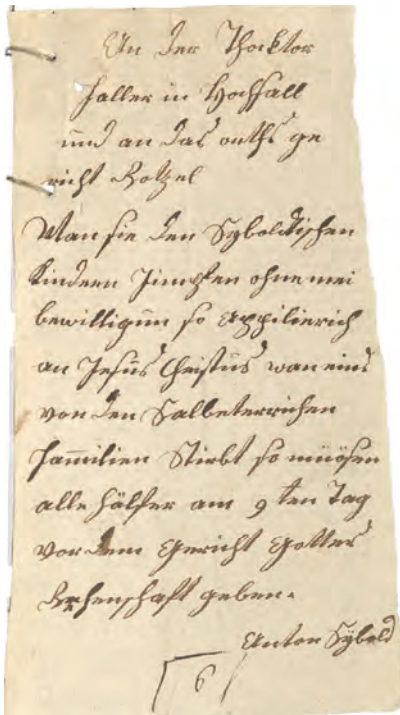 An der Thocktor
Faller in Hochsall
und an das orths ge
richt Rotzel
Wan sie den Syboldischen
Kindern Jimpfen ohne mei
bewilligun so Appilierich
an Jesus Christus wan eins
von den Salbeterrichen
Familien Stirbt so müösen
alle hälfer am 9ten Tag
vor dem Gericht Gottes
Rehenschaft geben.
Anton Sybold
6